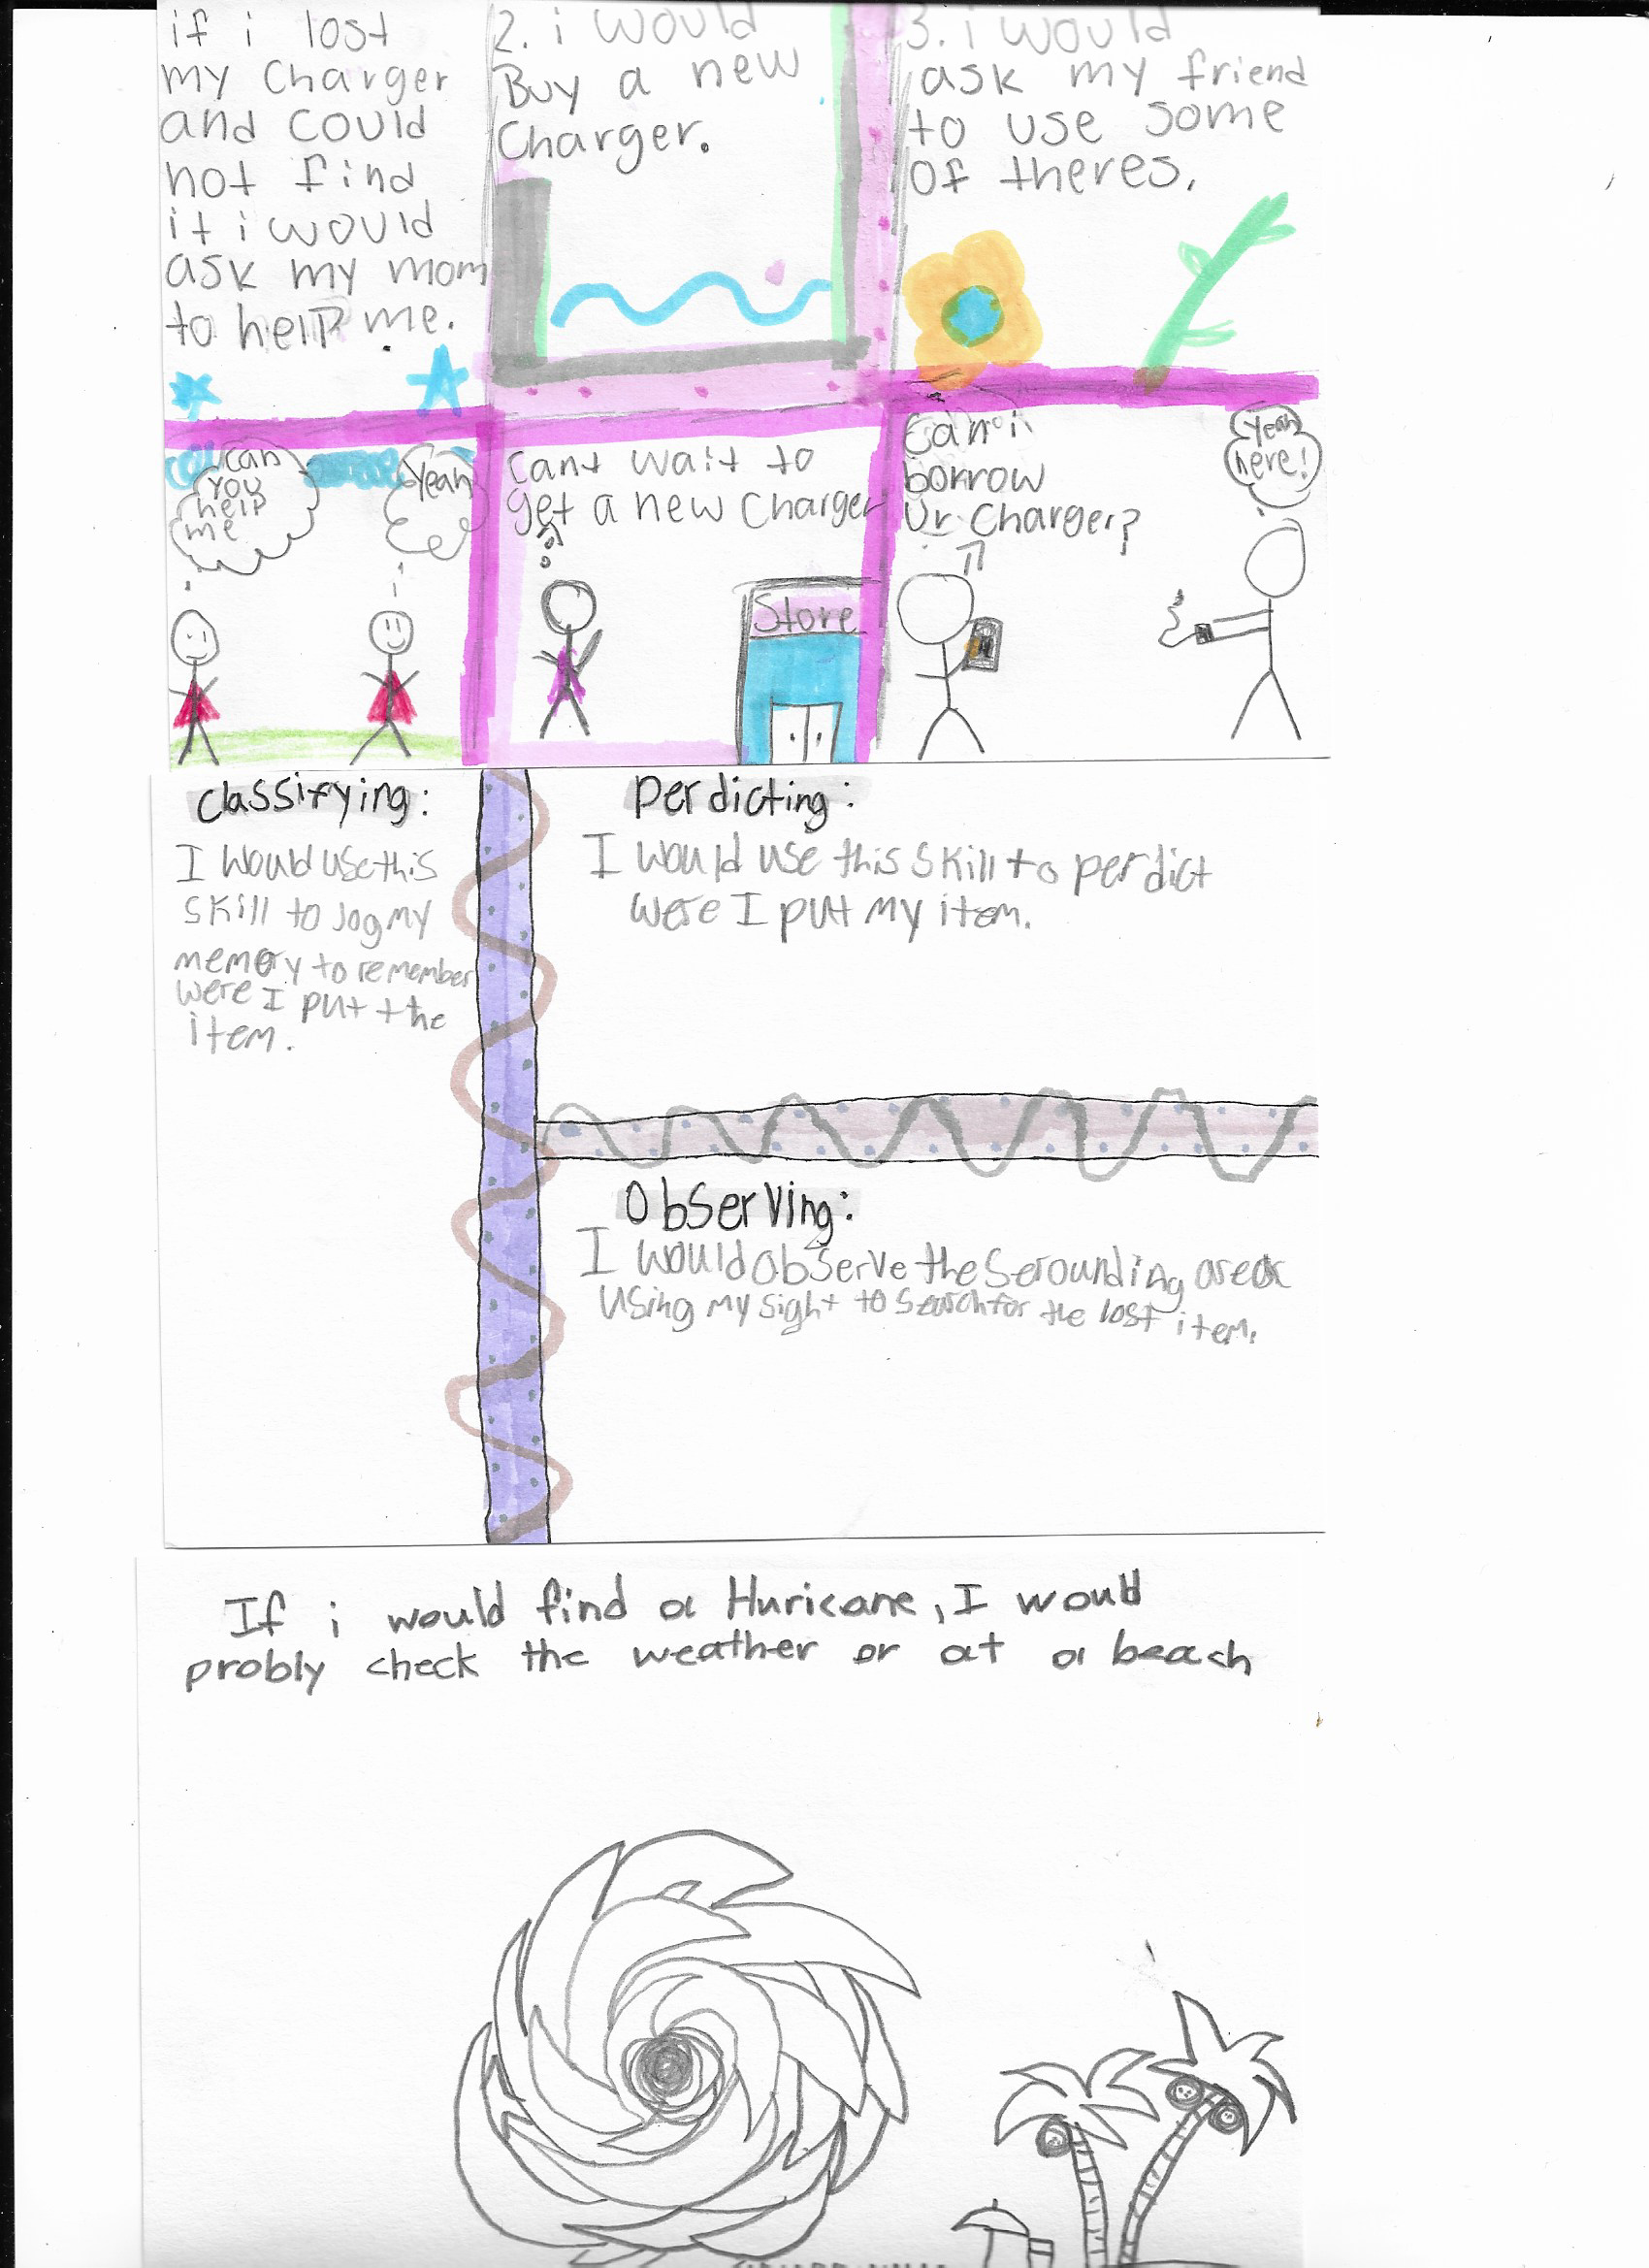 if i lost
my Charger
and could
not find
it i would
ask my mom
to help me.
2. i would
Buy a new
Charger.
3. i would
ask my friend
to use some
of theres.
can
you
help
me
Yeah
Cant wait to
get a new Charger
Store
Can i
borrow
Ur Charger?
Yeah
here!
Classifying:
I would use this
skill to jog my
memory to remember
were I put the
item.
Perdicting:
I would use this skill to perdict
were I put my item.
Observing:
I would observe the serounding area
using my sight to search for the lost item.
If i would find a Huricane, I would
probly check the weather or at a beach